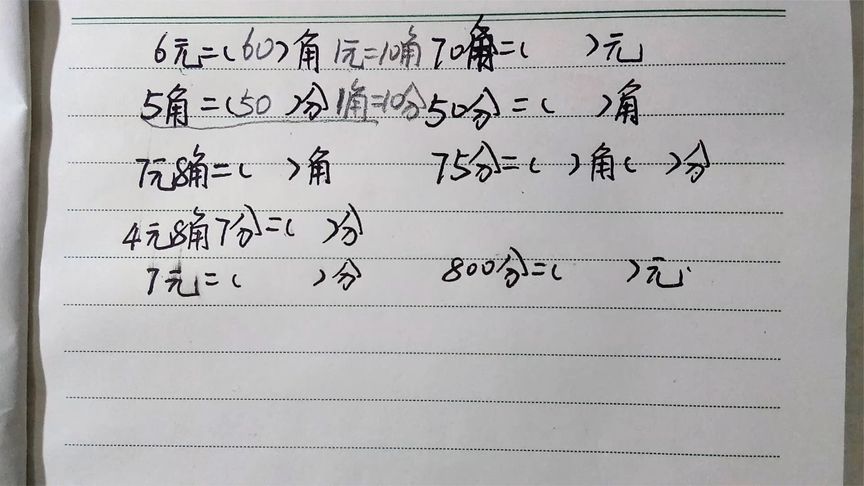 6元=(60)角 1元=10角 70角=( )元
5角=(50 )分 1角=10分 50分=( )角
7元8角=( )角 75分=( )角( )分
4元8角7分=( )分
7元=( )分 800分=( )元